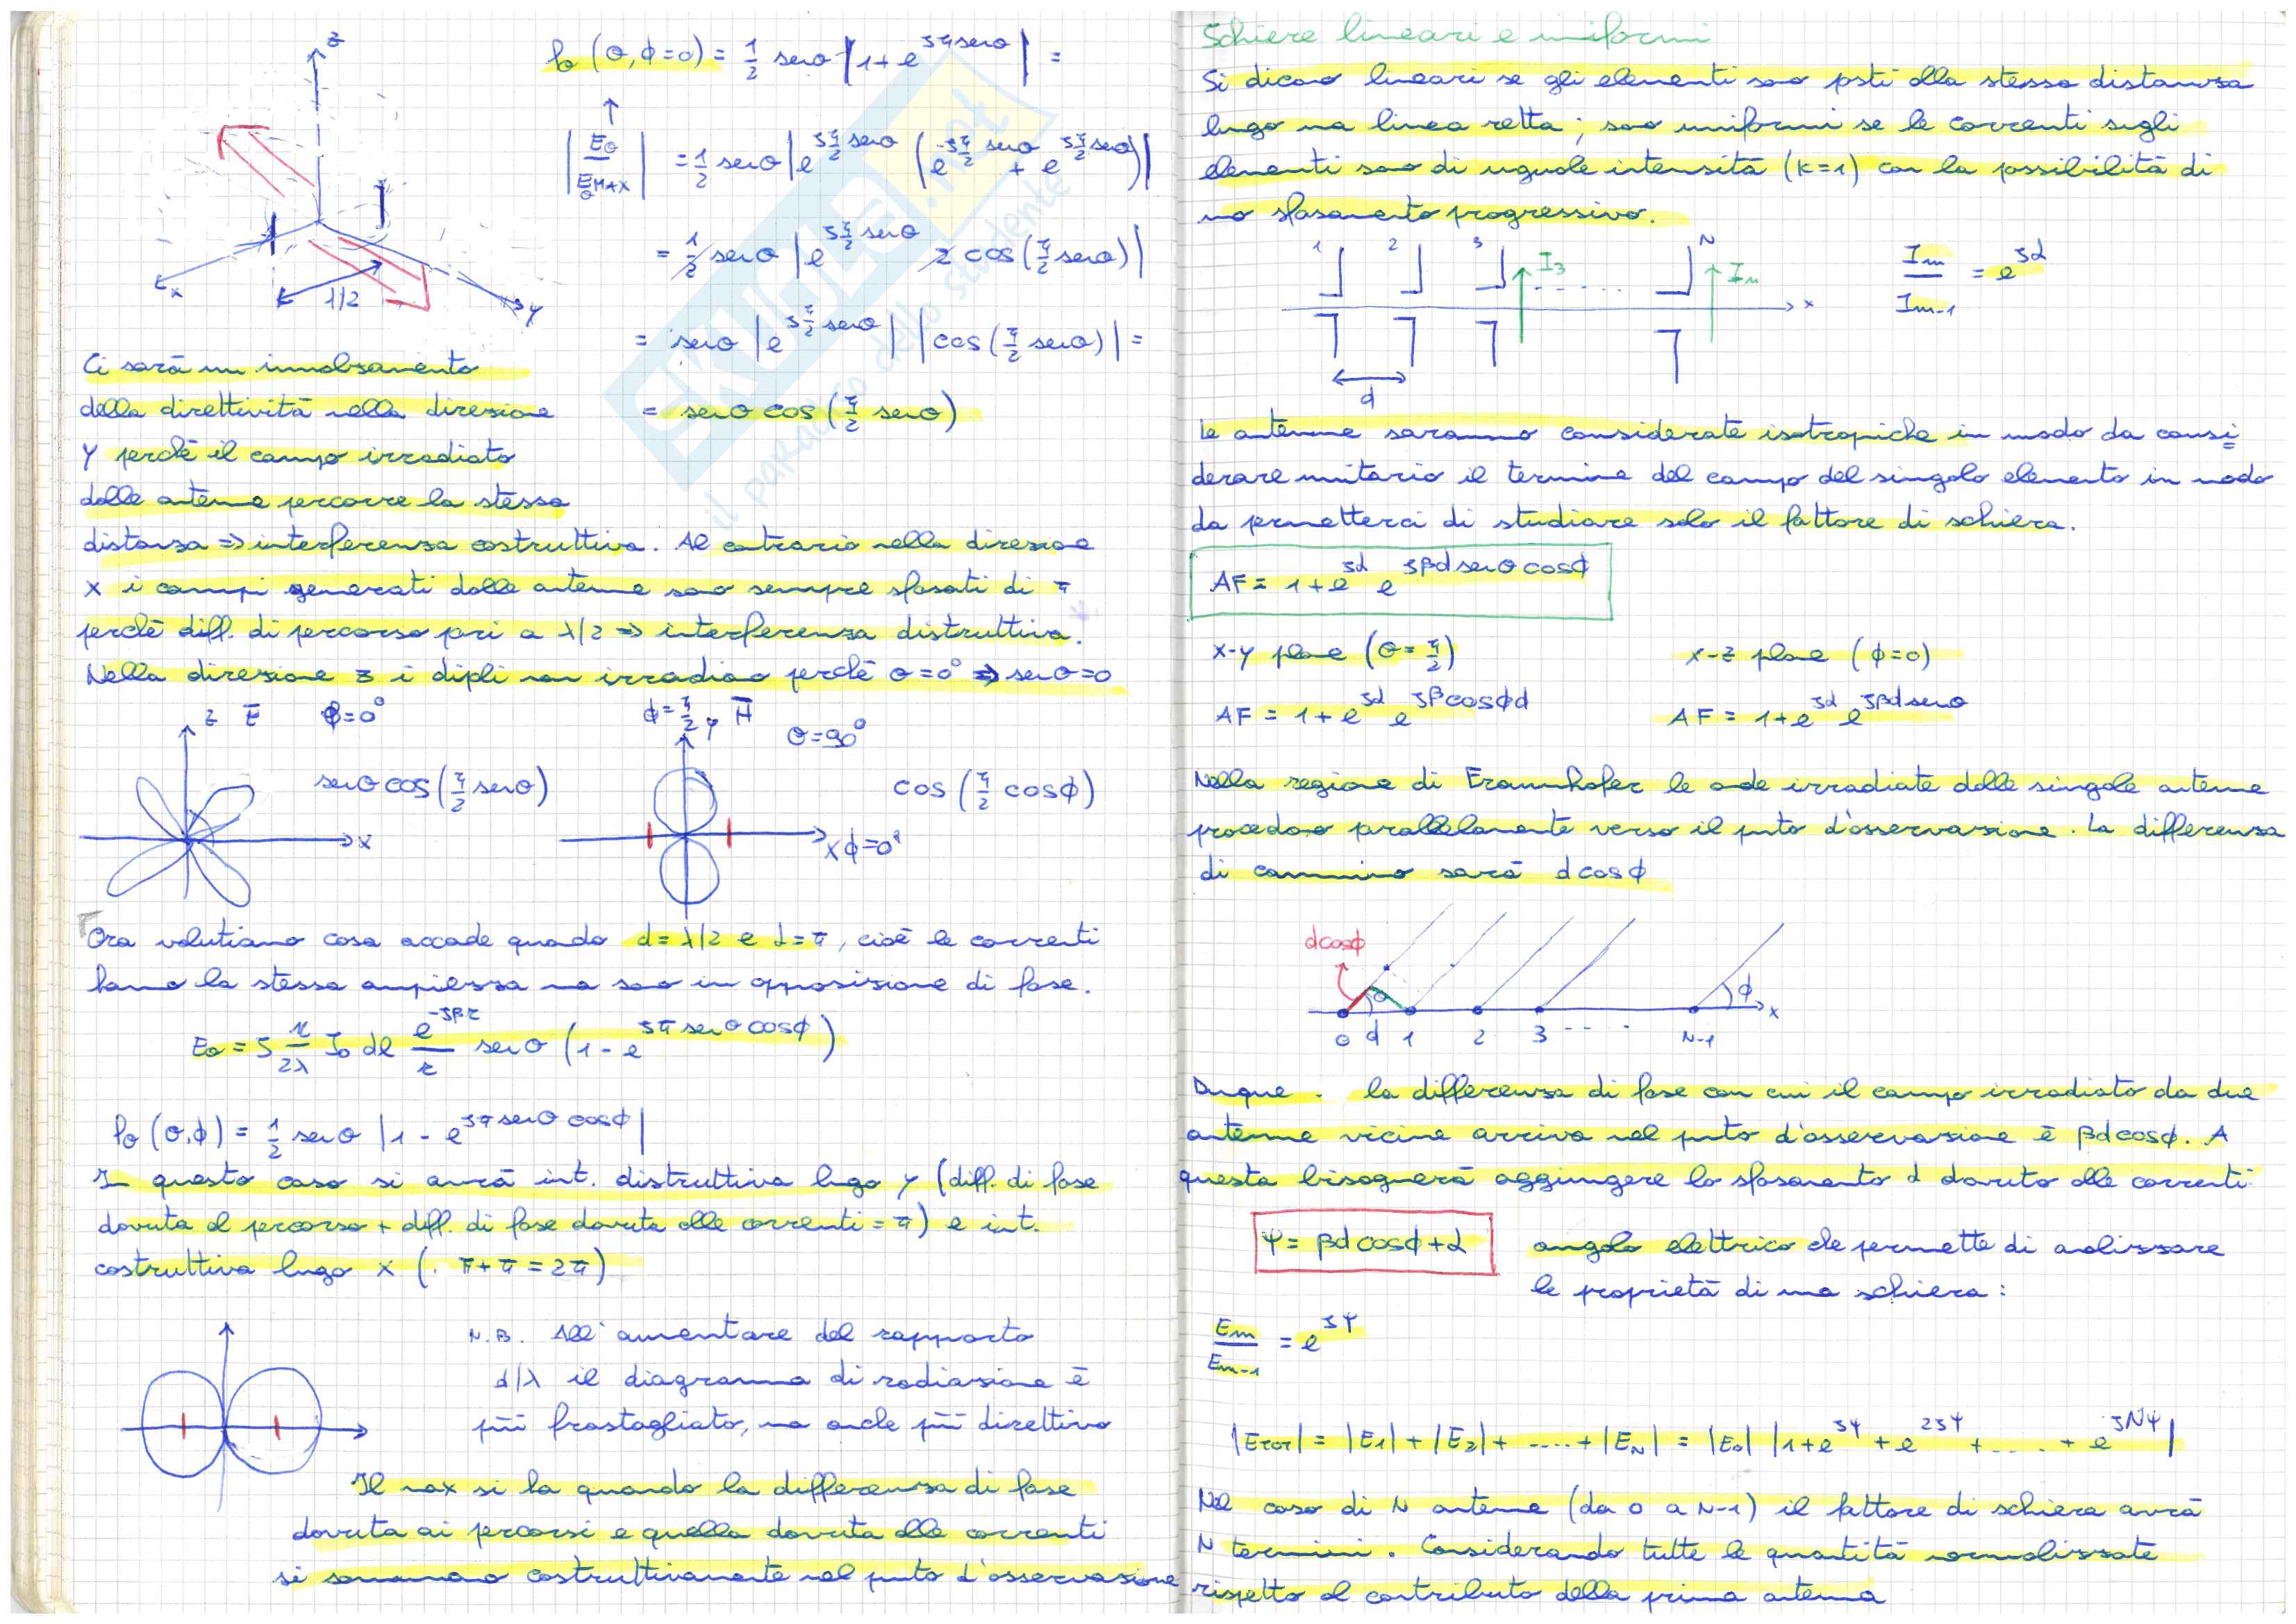 z
fθ (θ, φ=0) = 1/2 senθ |1+e^{jπsenθ}| =
↑
|Eθ/EθMAX| = 1/2 senθ |e^{jπ/2 senθ} (e^{-jπ/2 senθ} + e^{jπ/2 senθ})|
= 1/2 senθ |e^{jπ/2 senθ} 2 cos(π/2 senθ)|
= senθ |e^{jπ/2 senθ}| |cos(π/2 senθ)| =
= senθ cos(π/2 senθ)
x
λ/2
y
Ci sarà un innalzamento
della direttività nella direzione
y perchè il campo irradiato
dalle antenne percorre la stessa
distanza => interferenza costruttiva. Al contrario nella direzione
x i campi generati dalle antenne sono sempre sfasati di π
perchè diff. di percorso pari a λ/2 => interferenza distruttiva.
Nella direzione z i dipoli non irradiano perchè θ=0° => senθ=0
z E φ=0°
senθ cos(π/2 senθ)
x
φ=π/2 y H θ=90°
cos(π/2 cosφ)
x φ=0°
Ora valutiamo cosa accade quando d=λ/2 e α=π, cioè le correnti
hanno la stessa ampiezza ma sono in opposizione di fase.
Eθ = j η/2λ I0 dl e^{-jβr}/r senθ (1-e^{jπ senθ cosφ})
fθ (θ,φ) = 1/2 senθ |1-e^{jπ senθ cosφ}|
In questo caso si avrà int. distruttiva lungo y (diff. di fase
dovuta al percorso + diff. di fase dovuta alle correnti = π) e int.
costruttiva lungo x (π+π=2π)
N.B. All'aumentare del rapporto
d/λ il diagramma di radiazione è
più frastagliato, ma anche più direttivo
Il max si ha quando la differenza di fase
dovuta ai percorsi e quella dovuta alle correnti
si sommano costruttivamente nel punto d'osservazione
Schiere lineari e uniformi
Si dicono lineari se gli elementi sono posti alla stessa distanza
lungo una linea retta; sono uniformi se le correnti sugli
elementi sono di uguale intensità (k=1) con la possibilità di
uno sfasamento progressivo.
1 2 3 I3 ...... N In x
In/In-1 = e^{jα}
d
Le antenne saranno considerate isotropiche in modo da consi
derare unitario il termine del campo del singolo elemento in modo
da permetterci di studiare solo il fattore di schiera.
AF = 1+e^{jα} e^{jβd senθ cosφ}
x-y plane (θ=π/2) x-z plane (φ=0)
AF = 1+e^{jα} e^{jβcosφd} AF = 1+e^{jα} e^{jβd senθ}
Nella regione di Fraunhofer le onde irradiate dalle singole antenne
procedono parallelamente verso il punto d'osservazione. La differenza
di cammino sarà d cosφ
d cosφ
φ
φ
x
0 d 1 2 3 ---- N-1
Dunque. la differenza di fase con cui il campo irradiato da due
antenne vicine arriva nel punto d'osservazione è βd cosφ. A
questa bisognerà aggiungere lo sfasamento α dovuto alle correnti
Ψ = βd cosφ+α angolo elettrico che permette di analizzare
le proprietà di una schiera:
En/En-1 = e^{jΨ}
|ETOT| = |E1| + |E2| + .... + |EN| = |E0| |1+e^{jΨ} + e^{2jΨ} + .... + e^{jNΨ}|
Nel caso di N antenne (da 0 a N-1) il fattore di schiera avrà
N termini. Considerando tutte le quantità normalizzate
rispetto al contributo della prima antenna
SKUOLA.net
il paradiso dello studente